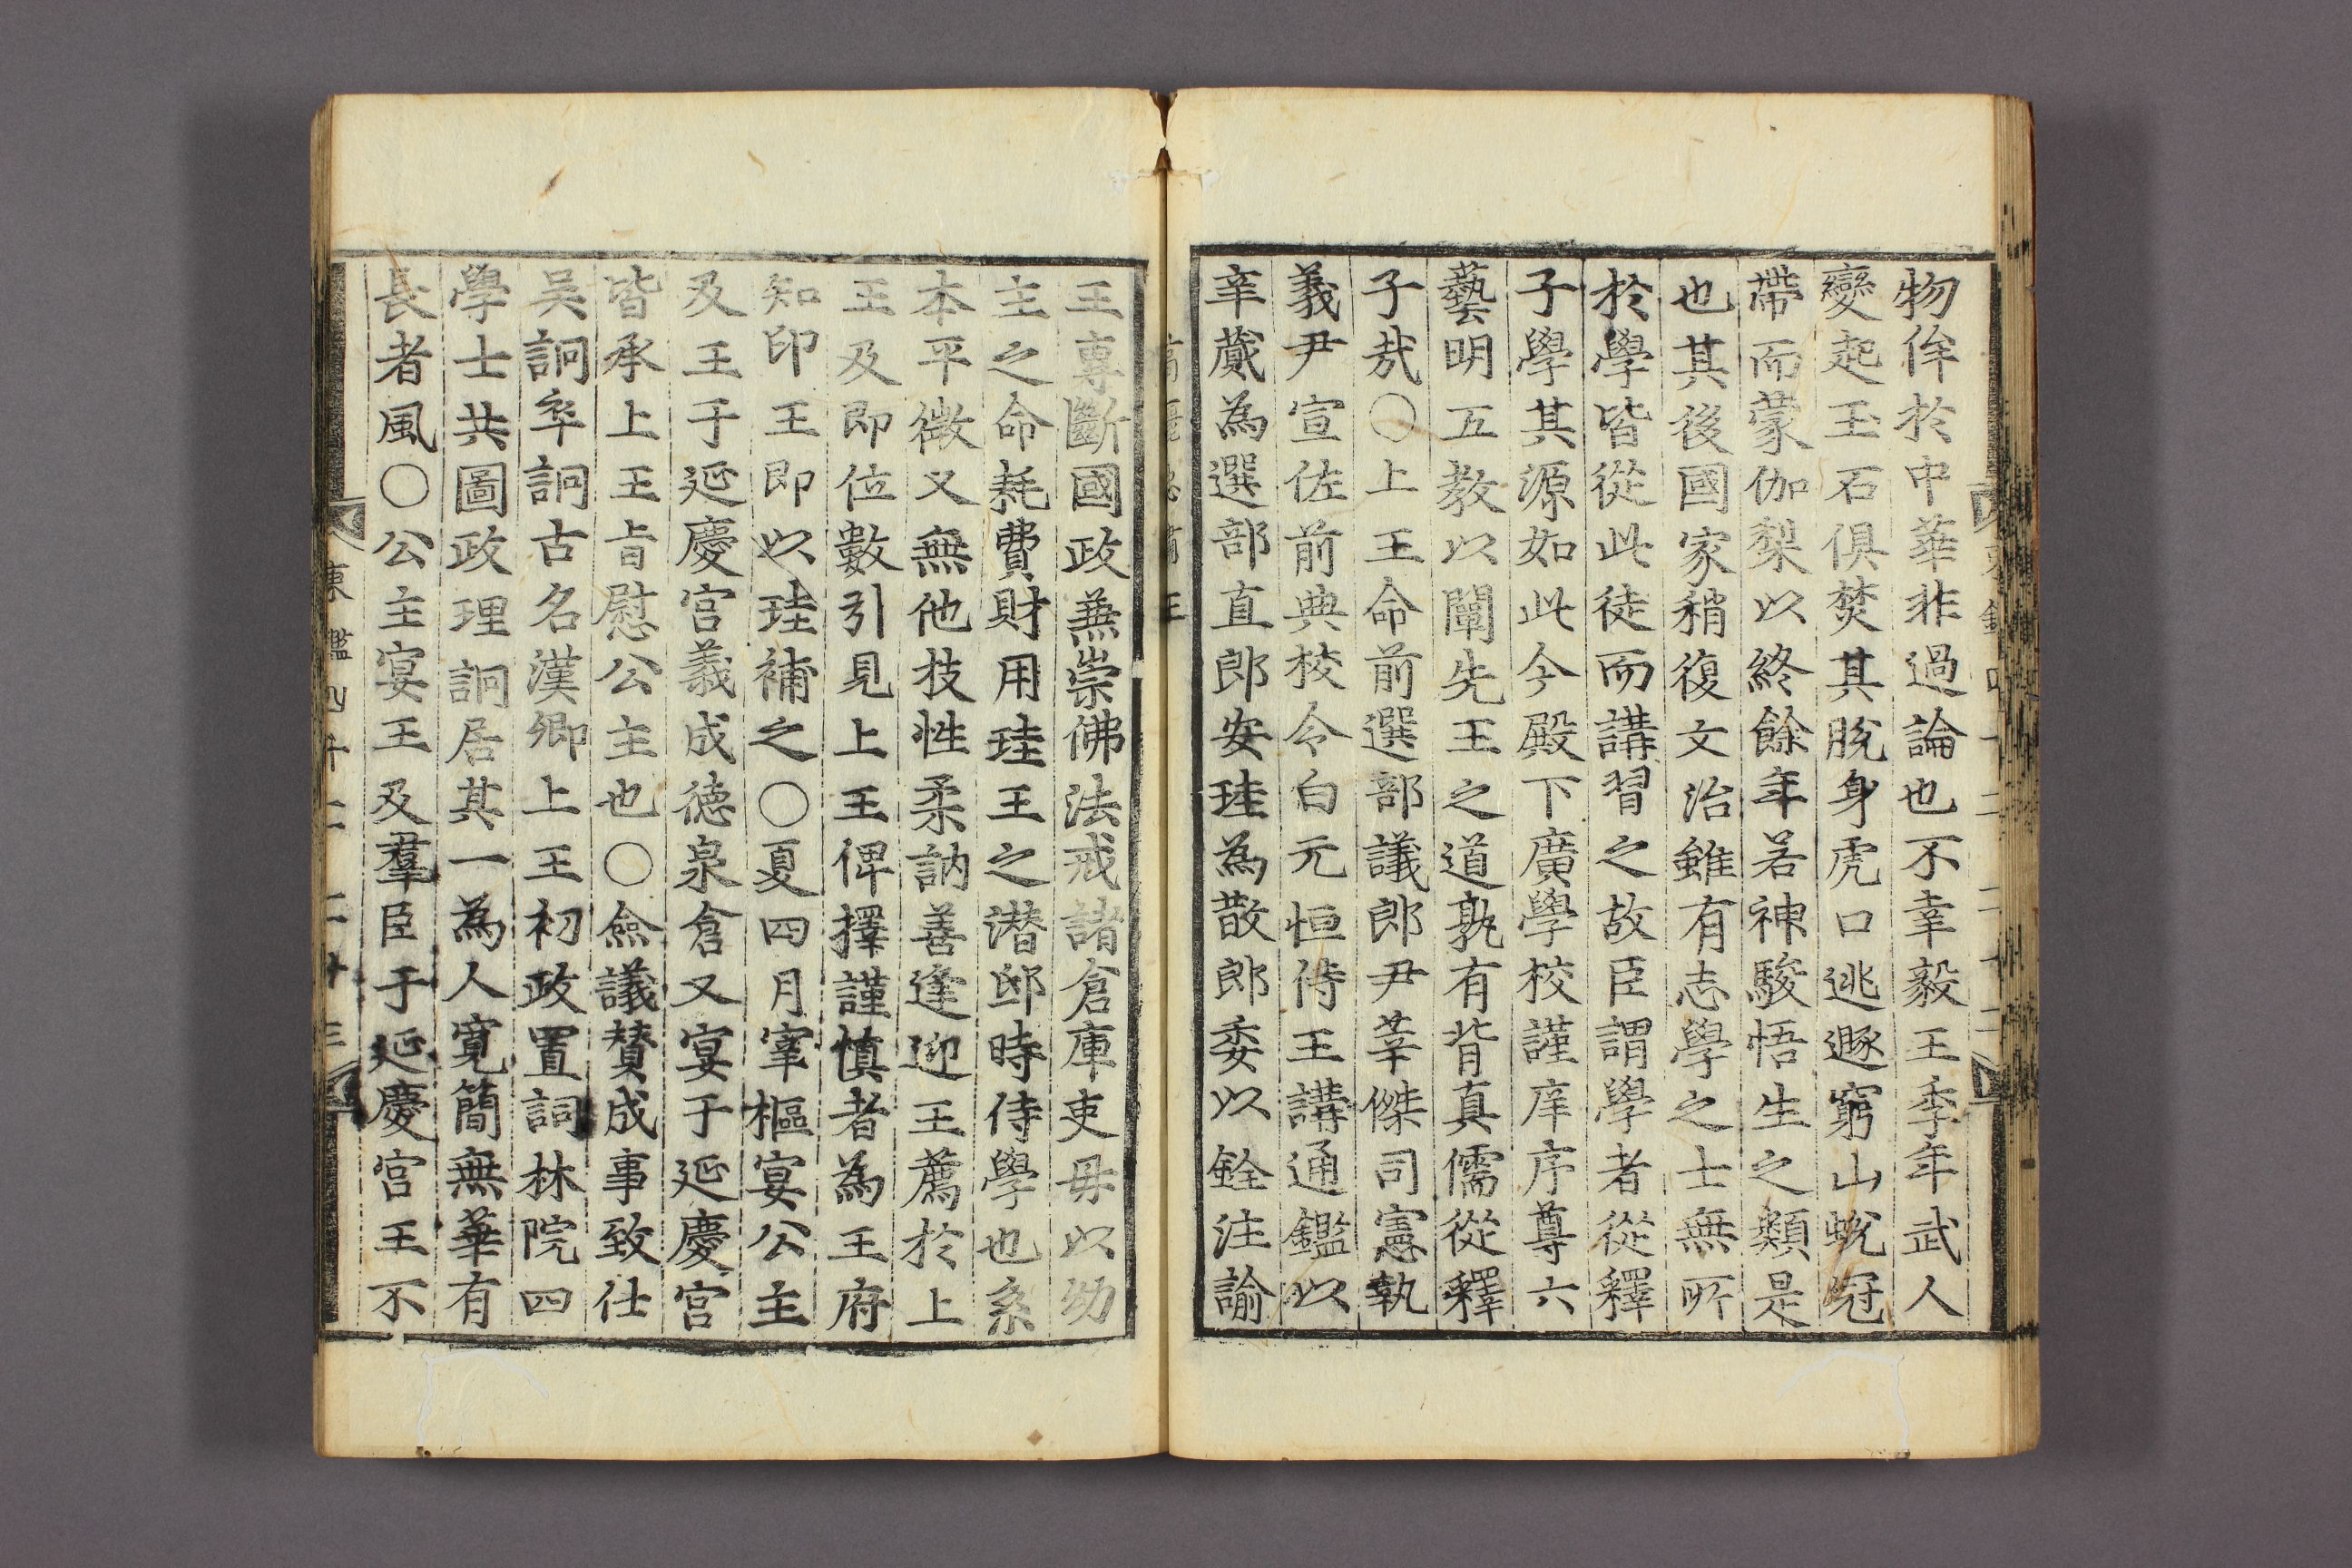 物侔於中華非過論也不幸毅王季年武人
變起玉石俱焚其脫身虎口逃遯窮山蛻冠
帶而蒙伽梨以終餘年若神駿悟生之類是
也其後國家稍復文治雖有志學之士無所
於學皆從此徒而講習之故臣謂學者從釋
子學其源如此今殿下廣學校謹庠序尊六
藝明五教以闡先王之道孰有背真儒從釋
子㢤○上王命前選部議郎尹莘傑司憲執
義尹宣佐前典校令白元恒侍王講通鑑以
辛蕆為選部直郎安珪為散郎委以銓注諭
王專斷國政無崇佛法戒諸倉庫吏毋以幼
主之命耗費財用珪王之潜邸時侍學也系
本平微又無他技性柔訥善逢迎王薦於上
王及即位數引見上王俾擇謹慎者為王府
知印王即以珪補之○夏四月宰樞宴公主
及王于延慶宫義成德泉倉又宴于延慶宫
皆承上王㫖慰公主也○僉議賛成事致仕
吳詗卒詗古名漢卿上王初政置詞林院四
學士共圖政理詗居其一為人寬簡無華有
長者風○公主宴王及羣臣于延慶宫王不
東鑑四十二 二十三